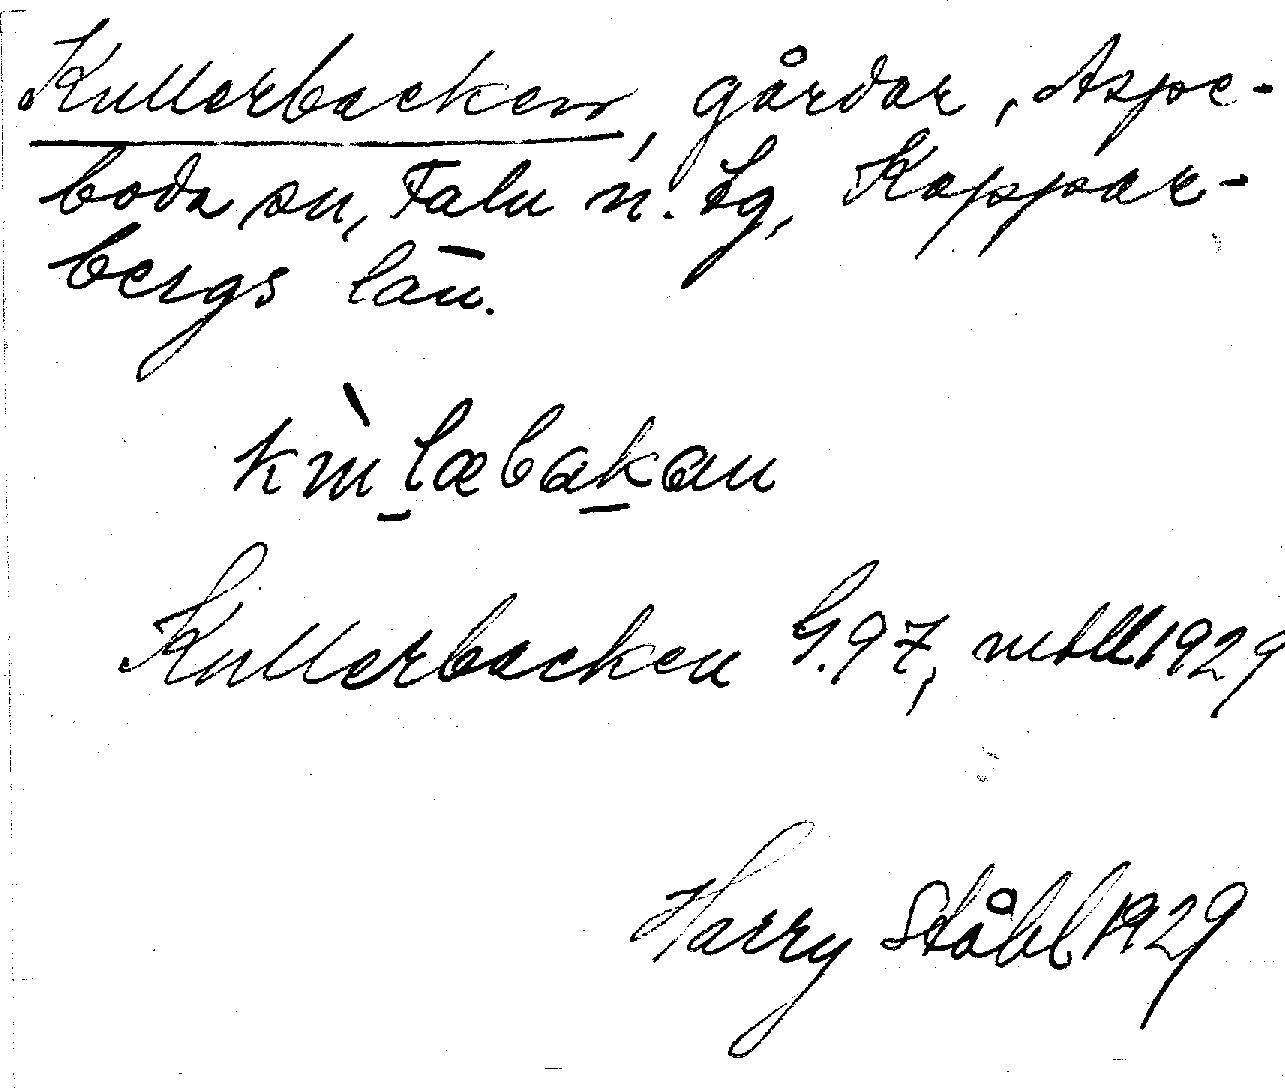 Kullerbacken, gårdar, Aspe-
boda sn, Falu n. tg, Koppar-
bergs län.
Kullerbacken G.97, mtll 1929
Harry Ståhl 1929